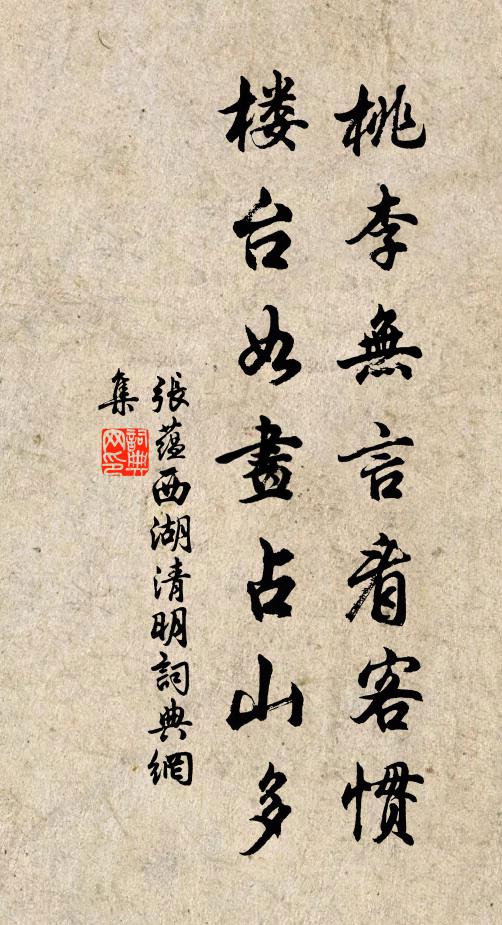 桃李無言看客慣
楼台如畫占山多
張蕴西湖清明詞典網
集
詞典网印